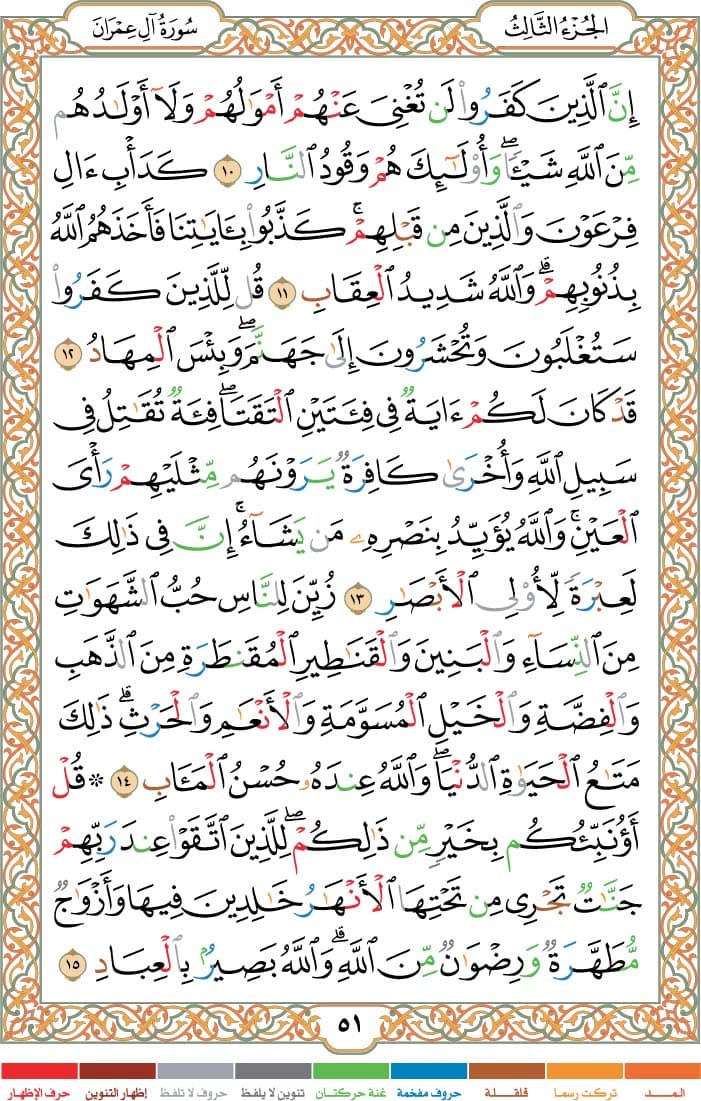 الجُزْءُ الثَّالِثُ
سُورَةُ آلِ عِمْرَانَ
إِنَّ ٱلَّذِينَ كَفَرُوا۟ لَن تُغْنِىَ عَنْهُمْ أَمْوَٰلُهُمْ وَلَآ أَوْلَـٰدُهُم
مِّنَ ٱللَّهِ شَيْـًٔا ۖ وَأُو۟لَـٰٓئِكَ هُمْ وَقُودُ ٱلنَّارِ ١٠ كَدَأْبِ ءَالِ
فِرْعَوْنَ وَٱلَّذِينَ مِن قَبْلِهِمْ ۚ كَذَّبُوا۟ بِـَٔايَـٰتِنَا فَأَخَذَهُمُ ٱللَّهُ
بِذُنُوبِهِمْ ۗ وَٱللَّهُ شَدِيدُ ٱلْعِقَابِ ١١ قُل لِّلَّذِينَ كَفَرُوا۟
سَتُغْلَبُونَ وَتُحْشَرُونَ إِلَىٰ جَهَنَّمَ ۚ وَبِئْسَ ٱلْمِهَادُ ١٢
قَدْ كَانَ لَكُمْ ءَايَةٌ فِى فِئَتَيْنِ ٱلْتَقَتَا ۖ فِئَةٌ تُقَـٰتِلُ فِى
سَبِيلِ ٱللَّهِ وَأُخْرَىٰ كَافِرَةٌ يَرَوْنَهُم مِّثْلَيْهِمْ رَأْىَ
ٱلْعَيْنِ ۚ وَٱللَّهُ يُؤَيِّدُ بِنَصْرِهِۦ مَن يَشَآءُ ۗ إِنَّ فِى ذَٰلِكَ
لَعِبْرَةً لِّأُو۟لِى ٱلْأَبْصَـٰرِ ١٣ زُيِّنَ لِلنَّاسِ حُبُّ ٱلشَّهَوَٰتِ
مِنَ ٱلنِّسَآءِ وَٱلْبَنِينَ وَٱلْقَنَـٰطِيرِ ٱلْمُقَنطَرَةِ مِنَ ٱلذَّهَبِ
وَٱلْفِضَّةِ وَٱلْخَيْلِ ٱلْمُسَوَّمَةِ وَٱلْأَنْعَـٰمِ وَٱلْحَرْثِ ۗ ذَٰلِكَ
مَتَـٰعُ ٱلْحَيَوٰةِ ٱلدُّنْيَا ۖ وَٱللَّهُ عِندَهُۥ حُسْنُ ٱلْمَـَٔابِ ١٤ ۞ قُلْ
أَؤُنَبِّئُكُم بِخَيْرٍ مِّن ذَٰلِكُمْ ۖ لِلَّذِينَ ٱتَّقَوْا۟ عِندَ رَبِّهِمْ
جَنَّـٰتٌ تَجْرِى مِن تَحْتِهَا ٱلْأَنْهَـٰرُ خَـٰلِدِينَ فِيهَا وَأَزْوَٰجٌ
مُّطَهَّرَةٌ وَرِضْوَٰنٌ مِّنَ ٱللَّهِ ۗ وَٱللَّهُ بَصِيرٌۢ بِٱلْعِبَادِ ١٥
٥١
المـــد تركت رسما قلقـلة حروف مفخمة غنة حركتـان تنوين لا يلفظ حروف لا تلفظ إظهار التنوين حرف الإظهار